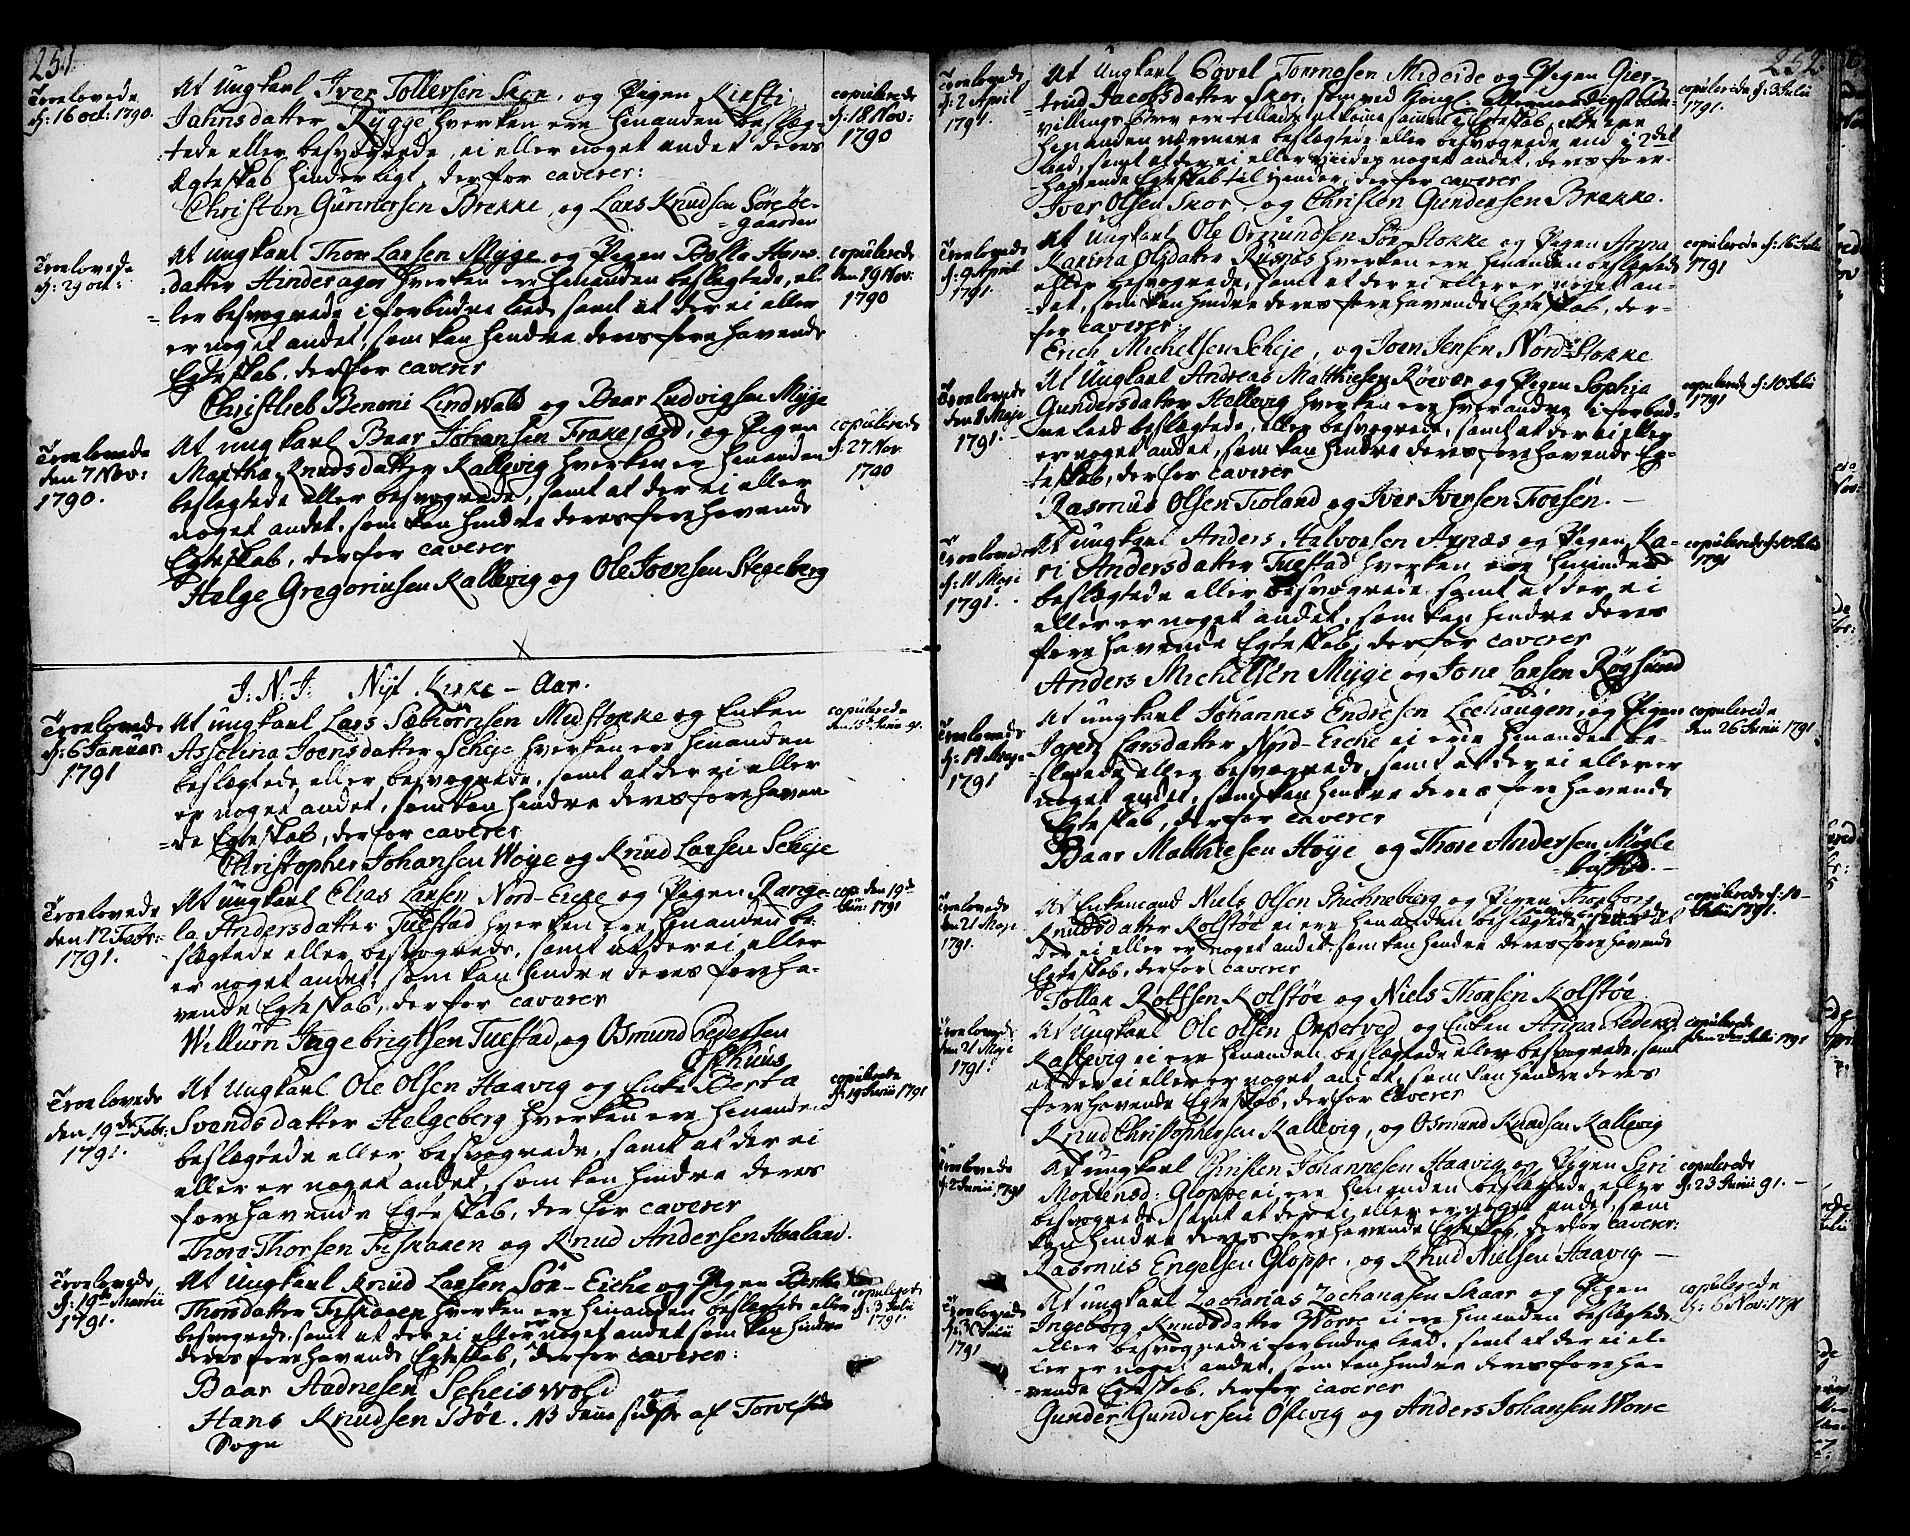 251.
Troelovede
d: 16 oct: 1790.
At Ungkarl Iver Tollersen Skor, og Pigen Kirsti
Jahnsdatter Rygge hverken ere hinanden beslæg-
tede eller besvogrede, ei eller noget andet deres
Egteskab hinderligt, derfor caverer:
Christen Gunnersen Brekke, og Lars Knudsen Sørebø-
=gaarden
copulerede
d: 18 Nov:
1790
Troelovede
d: 29 oct:
At ungkarl Thor Larsen Myge og Pigen Bolla Hans-
datter Hinderager hverken ere hinanden beslegtede, el-
ler besvogrede i forbudne leed samt at der ei eller
er noget andet, som kan hindre deres forehavende
Egteskab, derfor caverer
Christlieb Benoni Lindwald og Baar Ludvigsen Myge
copulerede
den 19 Nov:
1790
Troelovede
den 7 Nov:
1790.
At ungkarl Baar Johansen Frakejord, og Pigen
Martha Knudsdatter Kallevig hverken er hinanden
beslegtede eller besvogrede, samt at der ei eller
noget andet, som kan hindre deres forehavende
Egteskab, derfor caverer
Helge Gregoriusen Kallevig og Ole Joensen Stegeberg
copulerede
d: 27 Nov
1790
J: N: J: Nyt Kirke-Aar.
Troelovede
d: 6 Januar:
1791
At ungkarl Lars Sæbiørnsen Midstokke og Enken
Asselina Joensdatter Scheje hverken ere hinanden
beslegtede eller besvogrede, samt at der ei eller
er noget andet, som kan hindre deres forehaven-
=de Egteskab, derfor caverer
Christopher Johansen Woge og Knud Larsen Scheje
copulerede
den 15de Junii 91.
Troelovede
den 12 Febr:
1791.
At ungkarl Elias Larsen Nord-Eike og Pigen Range-
la Andersdatter Tuestad hverken ere hinanden be-
slegtede eller besvogrede, samt at der ei eller
er noget andet, som kan hindre deres foreha-
vende Egteskab, derfor caverer
Willum Ingebrigtsen Tuestad, og Osmund Pedersen
Ophuus
cop: den 19de
Jun: 1791
Troelovede
den 19de Febr:
1791.
At Ungkarl Ole Olsen Haavig og Enke Berta
Svendsdatter Helgeberg hverken ere hinanden
beslegtede eller besvogrede, samt at der ei
eller er noget andet, som kan hindre deres
forehavende Egteskab, derfor caverer
Thore Thorsen Fiskaaen og Knud Andersen Haaland.
copulerede
d: 19 Junii 1791
Troelovede
d: 19de Martii
1791.
At Ungkarl Knud Larsen Sør-Eiche og Pigen Bertha
Thorsdatter Fiskaaen hverken ere hinanden beslegtede eller
besvogrede, samt at der ei eller er noget andet som kan hindre
deres forehavende Egteskab, derfor caverer:
Baar Aadnesen Scheiswold
Hans Knudsen Bøe. NB denne sidste af Torvestad
Sogn
copulerede
d: 3 Julii
1791.
252.
Troelovede
d: 2 April
1791.
At Ungkarl Povel Tormosen Mideide og Pigen Gier-
trud Jacobsdatter Skor, som ved Kongl: allernaadigst be-
villings brev ere tilladt at komme sammen i Egteskab, ikke ere
hinanden nærmere beslegtede eller besvogrede end i 2det
leed, samt at der ei eller vides noget andet, deres fore-
havende Egteskab til hinder, derfor caverer
Iver Olsen Skor, og Christen Gundersen Brekke.
copulerede d: 3 Julii
1791.
Troelovede
d: 9 April
1791.
At Ungkarl Ole Osmundsen Sør Stokke og Pigen Anna
Karina Olsdatter Røsnæs hverken ere hinanden beslegtede
eller besvogrede, samt at der ei eller er noget an-
det, som kan hindre deres forehavende Egteskab, der-
for caverer:
Erich Michelsen Scheje, og Joen Jensen Nord Stokke
copulerede d: 16 Julii
1791
Troelovede
den 1 Maje
1791.
At Ungkarl Andreas Matthiesen Røevær og Pigen Sophie
Gundersdatter Hellevig hverken ere hverandre i forbud-
ne leed beslegtede, eller besvogrede, samt at der ei eller
er noget andet, som kan hindre deres forehavende Eg-
teskab, derfor caverer
Rasmus Olsen Tioland og Iver Iversen Foesen.
copulerede d: 10 Julii
1791
Troelovede
d: 11 Maji
1791.
At ungkarl Anders Halvorsen Arnæs og Pigen Ka-
ri Andersdatter Tuestad hverken ere hinanden
beslegtede eller besvogrede samt at der ei
eller er noget andet, som kan hindre deres
forehavende Egteskab, derfor caverer
Anders Michelsen Myge og Jone Larsen Røgsund
copulerede d: 10 Julii
1791
Troelovede
d: 14 Maje
1791
At ungkarl Johannes Endresen Leehaugen, og Pigen
Joren Larsdatter Nord-Eiche ei ere hinanden be-
slegtede eller besvogrede, samt at der ei eller er
noget andet, som kan hindre deres forehavende
Egteskab, derfor caverer
Baar Matthiesen Høye og Thore Andersen Møgle-
=bøstad.
copulerede
den 26 Junii 1791
Troelovede
den 21 Maje
1791.
At Enkemand Niels Olsen og Pigen Thorborg
Knudsdatter Kolstøe ei ere hinanden beslegtede
der ei eller er noget andet som kan hindre deres forehavende
Egteskab, derfor caverer
Tollak Rolfsen Kolstøe og Niels Thorsen Kolstøe
copulerede d: 10
Julii 1791.
Troelovede
den 21 Maje
1791.
At Ungkarl Ole Olsen og Enken Anna Pedersd:
Kallevig ei ere hinanden beslegtede eller besvogrede, samt
at der ei eller er noget andet, som kan hindre deres
forehavende Egteskab, derfor caverer
Knud Christophersen Kallevig, og Osmund Knudsen Kallevig
copulerede
Julii 1791
Troelovede
d: 2 Junii 1791
At ungkarl Christen Johannesen Haavig og Pigen Siri
Mortensd: Gloppe ei ere hinanden beslegtede eller
besvogrede, samt at der ei eller er noget andet, som
kan hindre deres forehavende Egteskab, derfor caverer:
Rasmus Engelsen Gloppe, og Knud Nielsen Haavig
copulerede
d: 23 Junii 91.
Troelovede
d: 30 Julii
1791
At ungkarl Zacharias Zachariasen Skaar og Pigen
Ingeborg Knudsdatter Worre ei ere hinanden beslegtede
eller besvogrede i forbudne leed, samt at der ei el-
ler er noget andet, som kan hindre deres foreha-
vende Egteskab, derfor caverer
Gunder Gundersen Østevig og Anders Johansen Worre
copulerede
d: 6 Nov: 1791